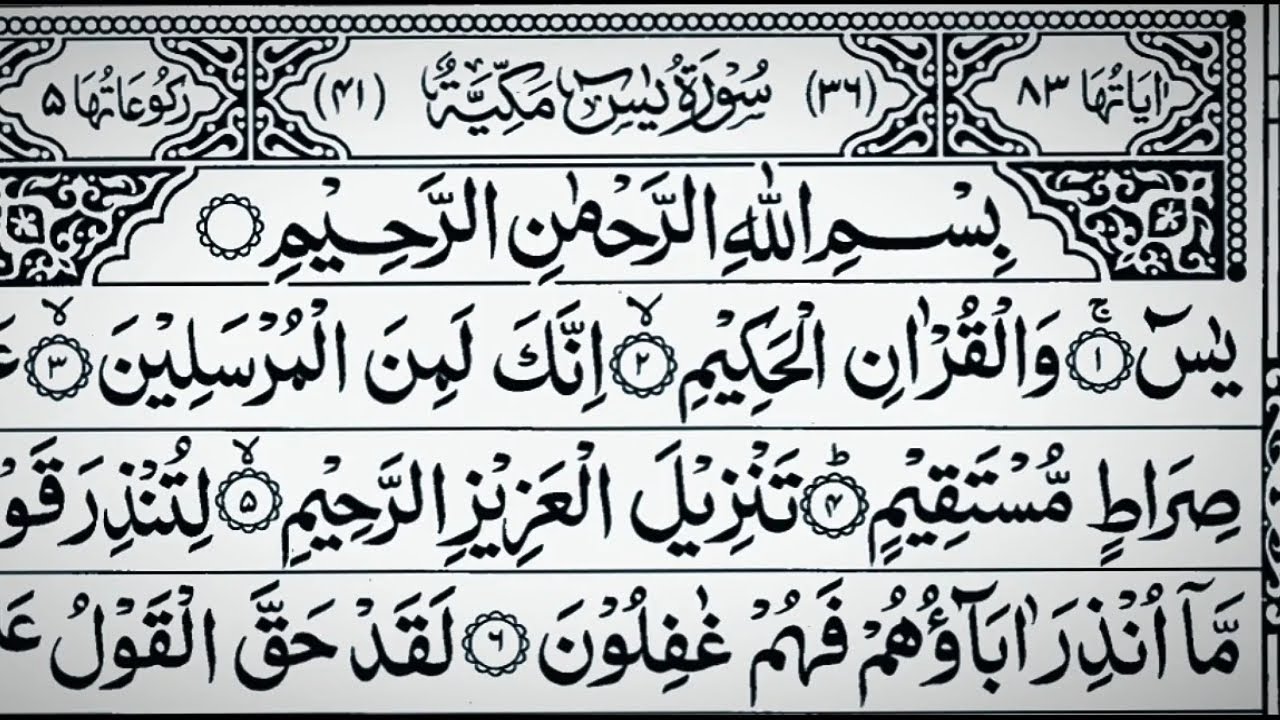 اٰيَاتُهَا ٨٣ (٣٦) سُوْرَةُ يٰسٓ مَكِّيَّةٌ (٤١) رَكُوْعَاتُهَا ۵
بِسْمِ اللّٰهِ الرَّحْمٰنِ الرَّحِيْمِ
يٰسٓ ۚ‏﴿۱﴾ وَالْقُرْاٰنِ الْحَكِيْمِ ۙ‏﴿۲﴾ اِنَّكَ لَمِنَ الْمُرْسَلِيْنَ ۙ‏﴿۳﴾
صِرَاطٍ مُّسْتَقِيْمٍ ؕ‏﴿۴﴾ تَنْزِيْلَ الْعَزِيْزِ الرَّحِيْمِ ۙ‏﴿۵﴾ لِتُنْذِرَ قَوْ
مَّاۤ اُنْذِرَ اٰبَآؤُهُمْ فَهُمْ غٰفِلُوْنَ ‏﴿۶﴾ لَقَدْ حَقَّ الْقَوْلُ عَ